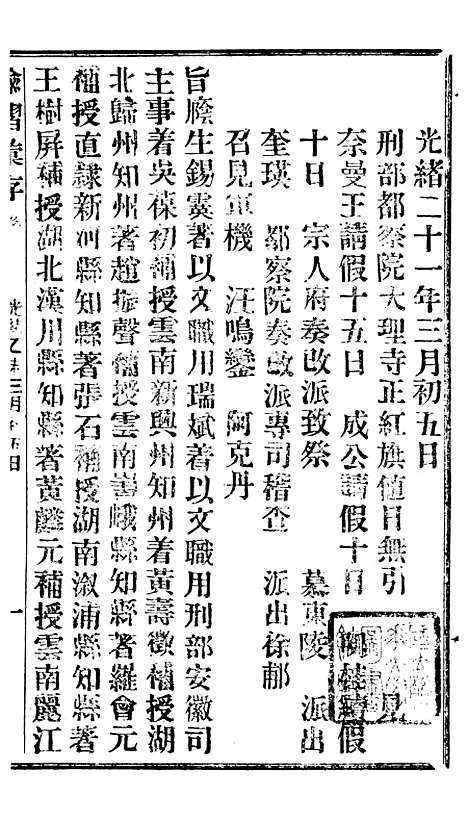 光緒二十一年三月初五日
刑部都察院大理寺正紅旗值日無引
奈曼王請假十五日　成公請假十日　續假
十日　宗人府奏改派致祭　慕東陵　派出
奎瑛　都察院奏改派專司稽查　派出徐郙
召見軍機　汪鳴鑾　阿克丹
旨廕生錫霙著以文職用瑞斌着以文職用刑部安徽司
主事着吳葆初補授雲南新興州知州着黃壽徵補授湖
北歸州知州著趙振聲補授雲南嶍峨縣知縣著羅會元
補授直隷新河縣知縣著張石補授湖南溆浦縣知縣著
王樹屏補授湖北漢川縣知縣著黃麟元補授雲南麗江
諭摺彙存
光緒乙未三月初五日
一